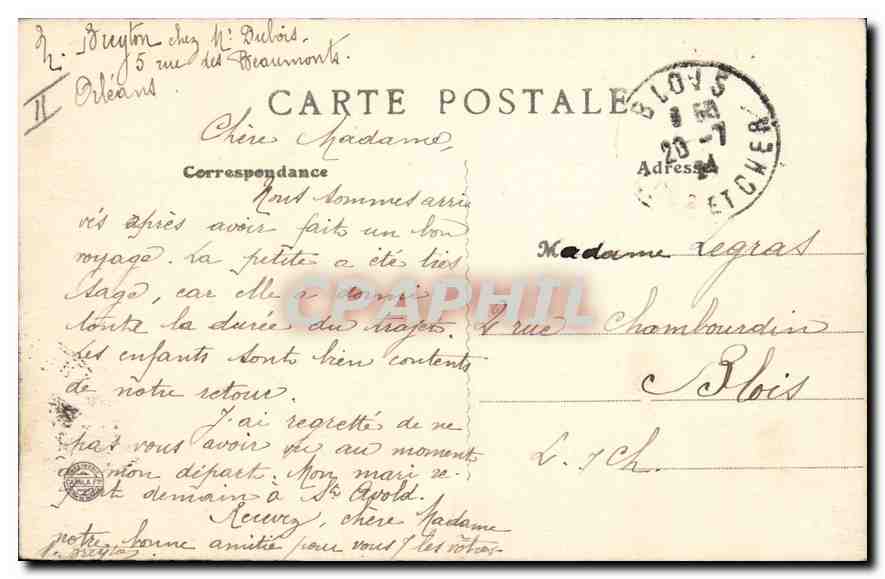 chez Mr Dubois.
5 rue des Beaumonts.
Orléans.
II
CARTE POSTALE
BLOIS
20 -7
ET CHER
Chère Madame,
Correspondance
Adresse
Nous sommes arri
vés après avoir fait un bon
voyage. La petite a été très
sage, car elle a dormi
toute la durée du trajet.
Les enfants sont bien contents
de notre retour.
J'ai regretté de ne
pas vous avoir vu au moment
de mon départ. Mon mari re-
part demain à St Avold.
Recevez, chère Madame
notre bonne amitié pour vous & les vôtres.
Madame Legras
2 rue Chambourdin
Blois
L. & Ch.
CPAPHIL